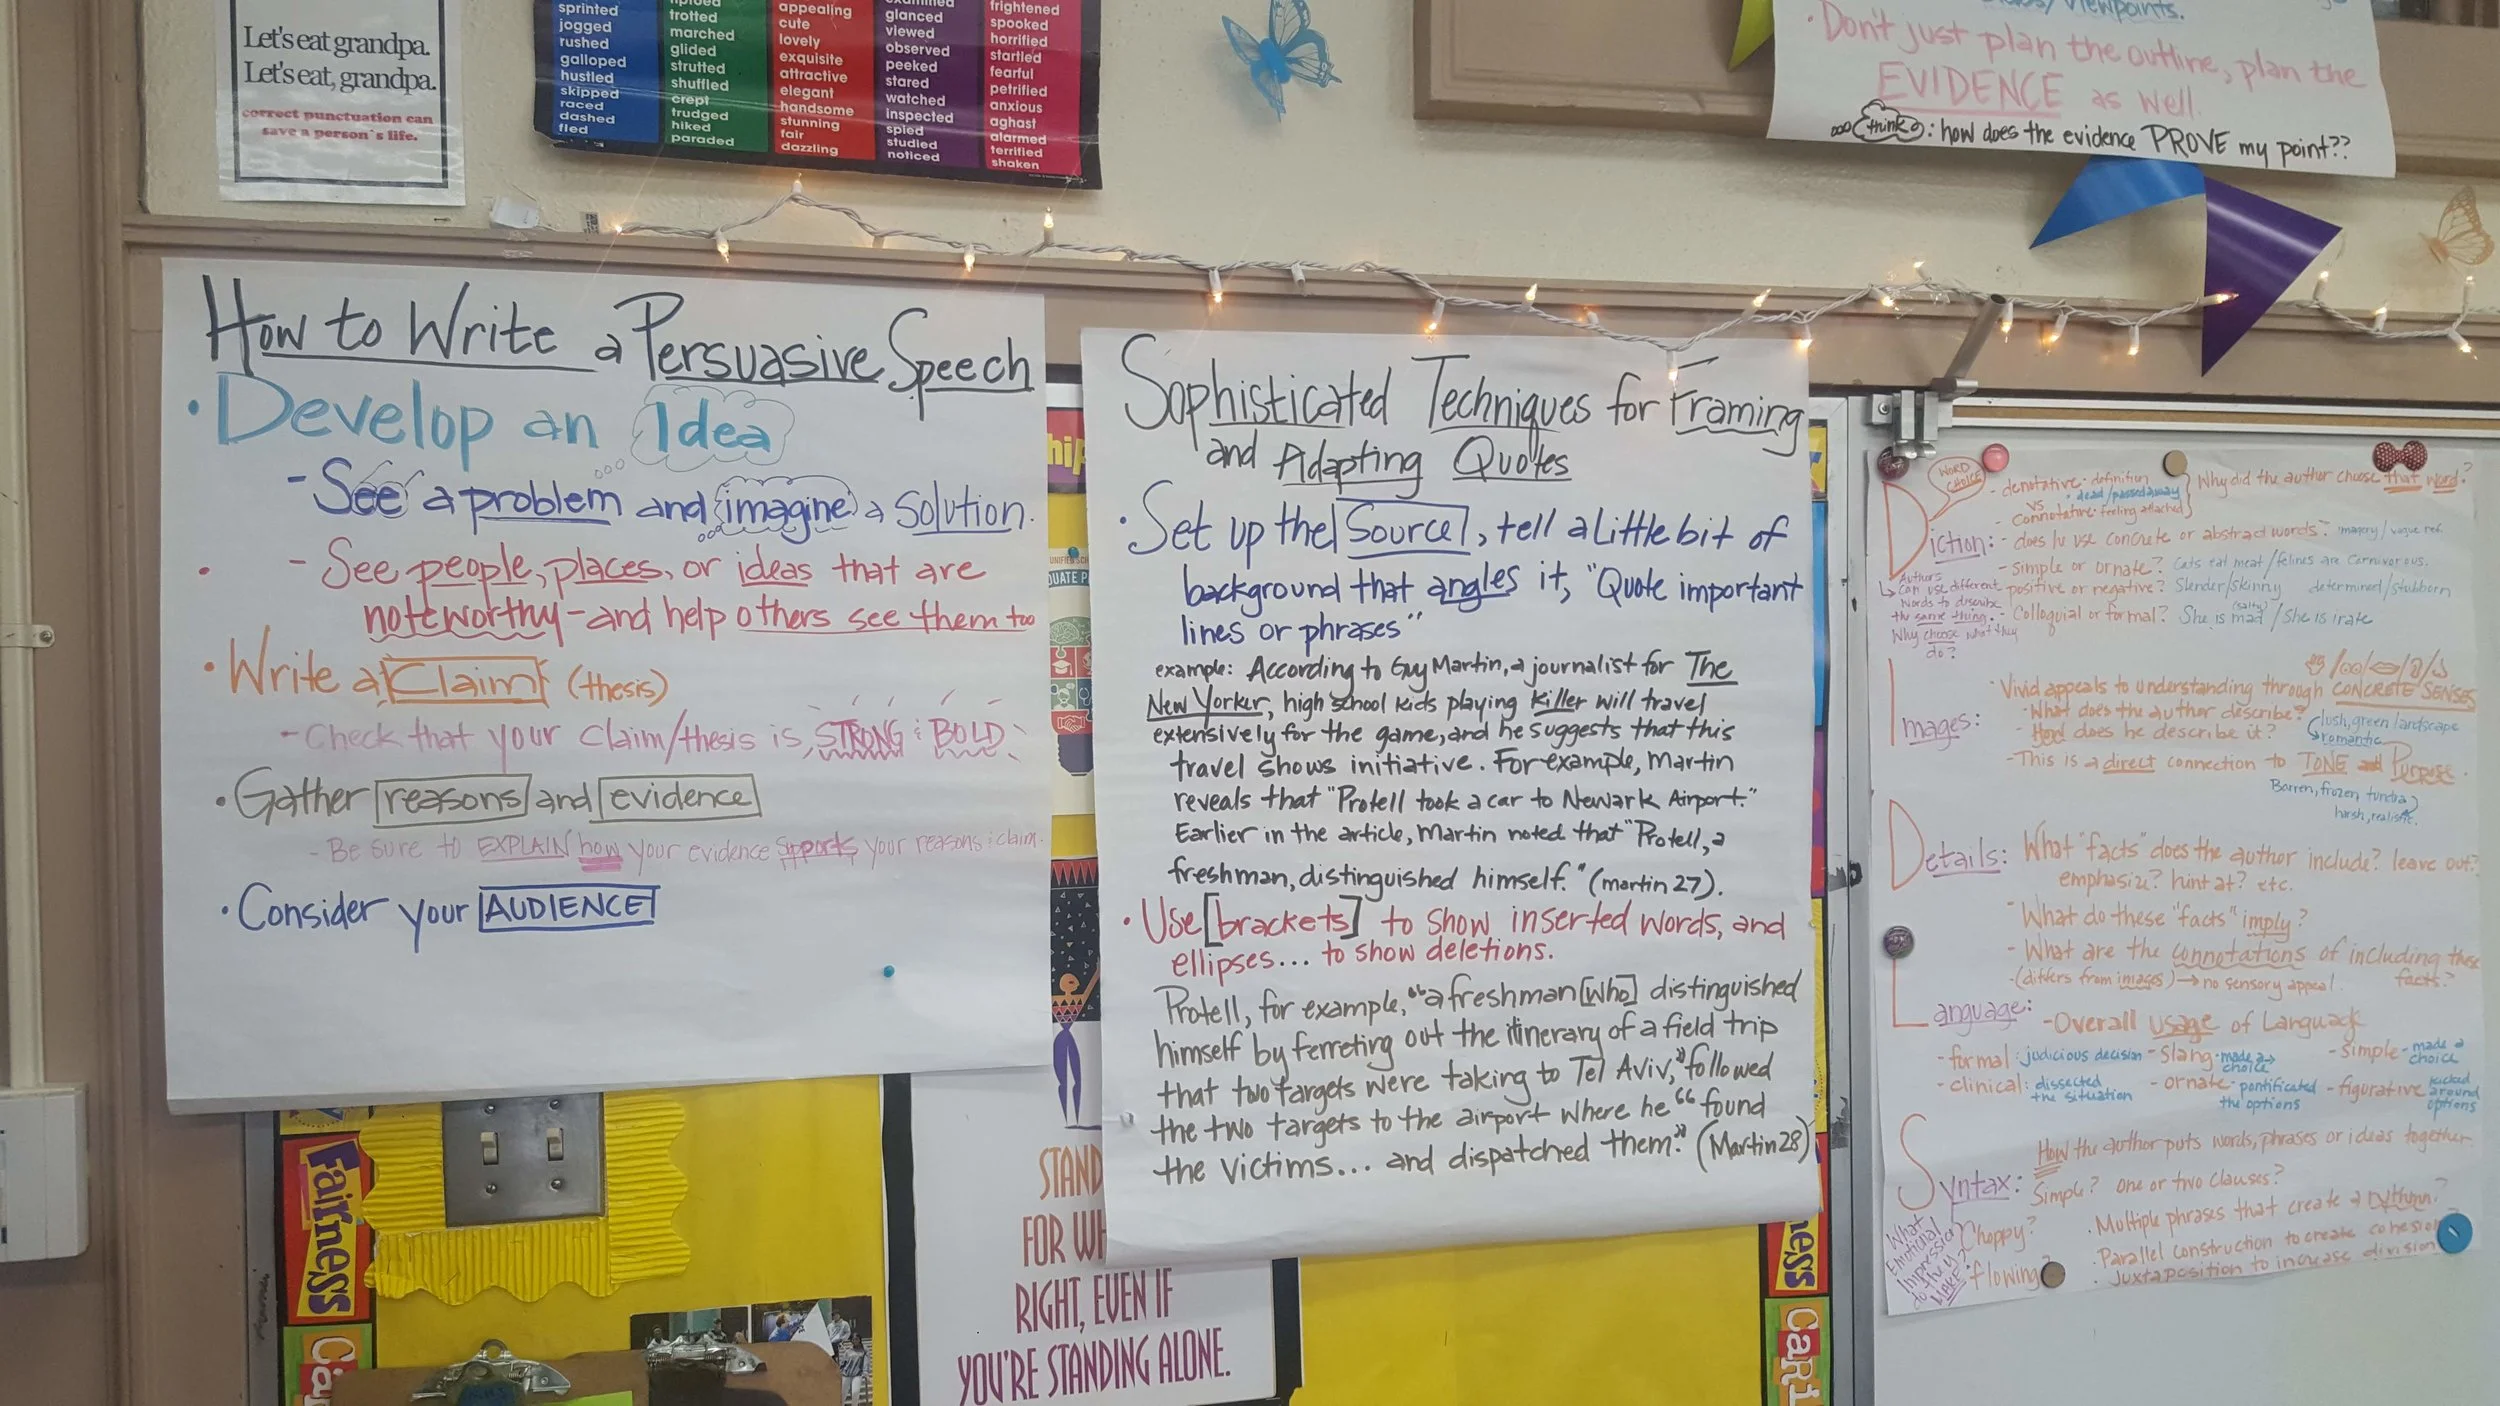 Let's eat grandpa.
Let's eat, grandpa.
correct punctuation can
save a person's life.
sprinted
jogged
rushed
galloped
hustled
skipped
raced
dashed
fled
trotted
marched
glided
strutted
shuffled
crept
trudged
hiked
paraded
appealing
cute
lovely
exquisite
attractive
elegant
handsome
stunning
fair
dazzling
glanced
viewed
observed
peeked
stared
watched
inspected
spied
studied
noticed
frightened
spooked
horrified
startled
fearful
petrified
anxious
aghast
alarmed
terrified
shaken
viewpoints.
• Don't just plan the outline, plan the
EVIDENCE as well.
think: how does the evidence PROVE my point??
How to Write a Persuasive Speech
• Develop an Idea
- See a problem and imagine a solution.
• - See people, places, or ideas that are
noteworthy - and help others see them too
• Write a Claim (thesis)
- Check that your claim/thesis is STRONG & BOLD
• Gather reasons and evidence
- Be sure to EXPLAIN how your evidence supports your reasons & claim.
• Consider your AUDIENCE
Sophisticated Techniques for Framing
and Adapting Quotes
• Set up the Source, tell a little bit of
background that angles it, "Quote important
lines or phrases"
example: According to Guy Martin, a journalist for The
New Yorker, high school kids playing Killer will travel
extensively for the game, and he suggests that this
travel shows initiative. For example, Martin
reveals that "Protell took a car to Newark Airport."
Earlier in the article, Martin noted that "Protell, a
freshman, distinguished himself." (Martin 27).
• Use [brackets] to show inserted words, and
ellipses... to show deletions.
Protell, for example, "a freshman [who] distinguished
himself by ferreting out the itinerary of a field trip
that two targets were taking to Tel Aviv," followed
the two targets to the airport where he "found
the victims... and dispatched them." (Martin 28)
WORD CHOICE
Diction:
- denotative · definition
· dead/passed away
vs
- connotative · feeling attached
Why did the author choose that word?
- does he use concrete or abstract words? imagery/vague ref.
- simple or ornate? Cats eat meat/felines are carnivorous.
positive or negative? Slender/skinny determined/stubborn
- Colloquial or formal? She is mad (salty) / She is irate
Authors can use different words to describe the same thing.
Why choose what they do?
Images:
· Vivid appeals to understanding through CONCRETE SENSES
- What does the author describe?
- How does he describe it?
lush, green landscape
romantic
- This is a direct connection to TONE and Purpose.
Barren, frozen tundra
harsh, realistic.
Details:
What "facts" does the author include? leave out?
emphasize? hint at? etc.
What do these "facts" imply?
- What are the connotations of including these
facts?
(differs from images) → no sensory appeal.
Language:
- Overall usage of Language
- formal: judicious decision
- slang · made a choice
- simple - made a choice
- clinical: dissected the situation
- ornate · pontificated the options
- figurative kicked around options
Syntax:
How the author puts words, phrases or ideas together.
Simple? one or two clauses?
Choppy?
flowing?
· Multiple phrases that create a rhythm?
· Parallel construction to create cohesion
· Juxtaposition to increase division
What emotional impression do they MAKE?
Fairness
STAND
FOR WH
RIGHT, EVEN IF
YOU'RE STANDING ALONE.